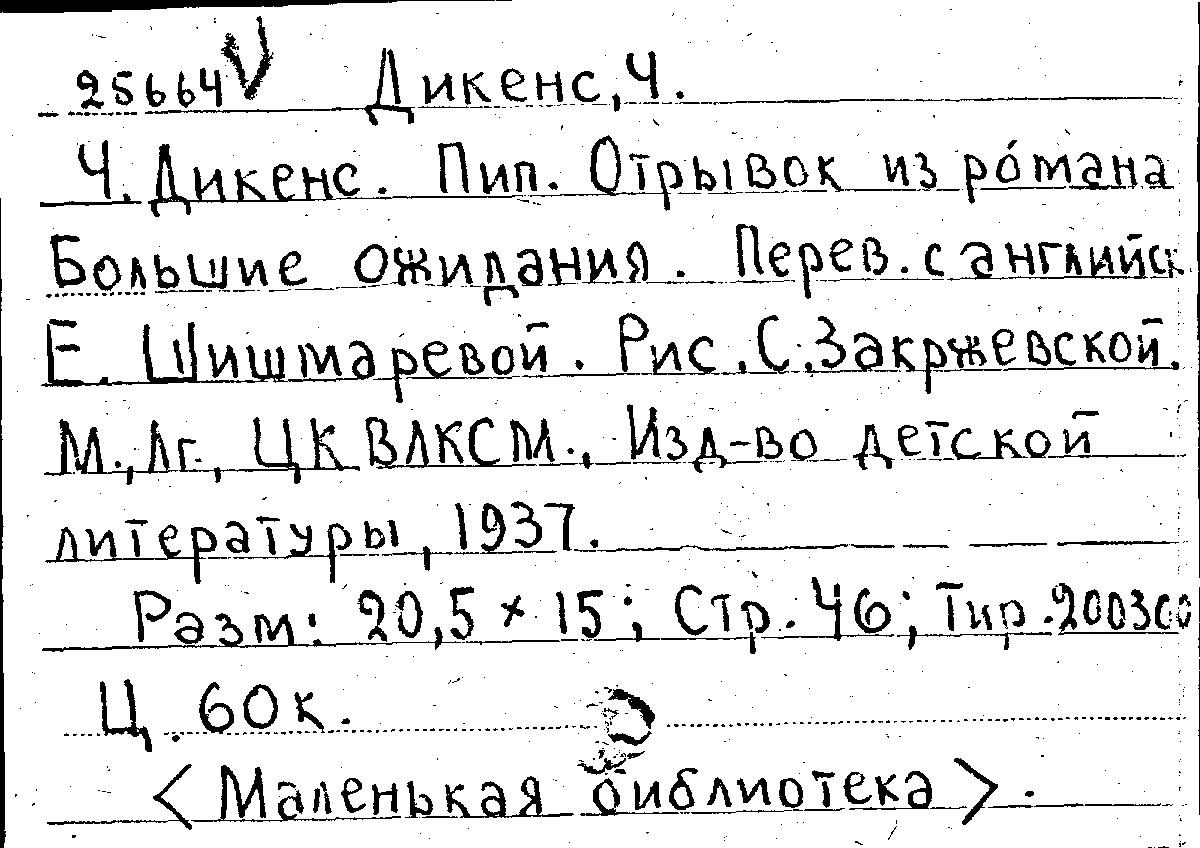 25664 V Дикенс, Ч.
Ч. Дикенс. Пип. Отрывок из ро́мана
Большие ожидания. Перев. с английск
Е. Шишмаревой. Рис. С. Закржевской.
М., Лг., ЦК ВЛКСМ., Изд-во детской
литературы, 1937.
Разм: 20,5 × 15; Стр. 46; Тир. 200300
Ц. 60 к.
<Маленькая библиотека>.